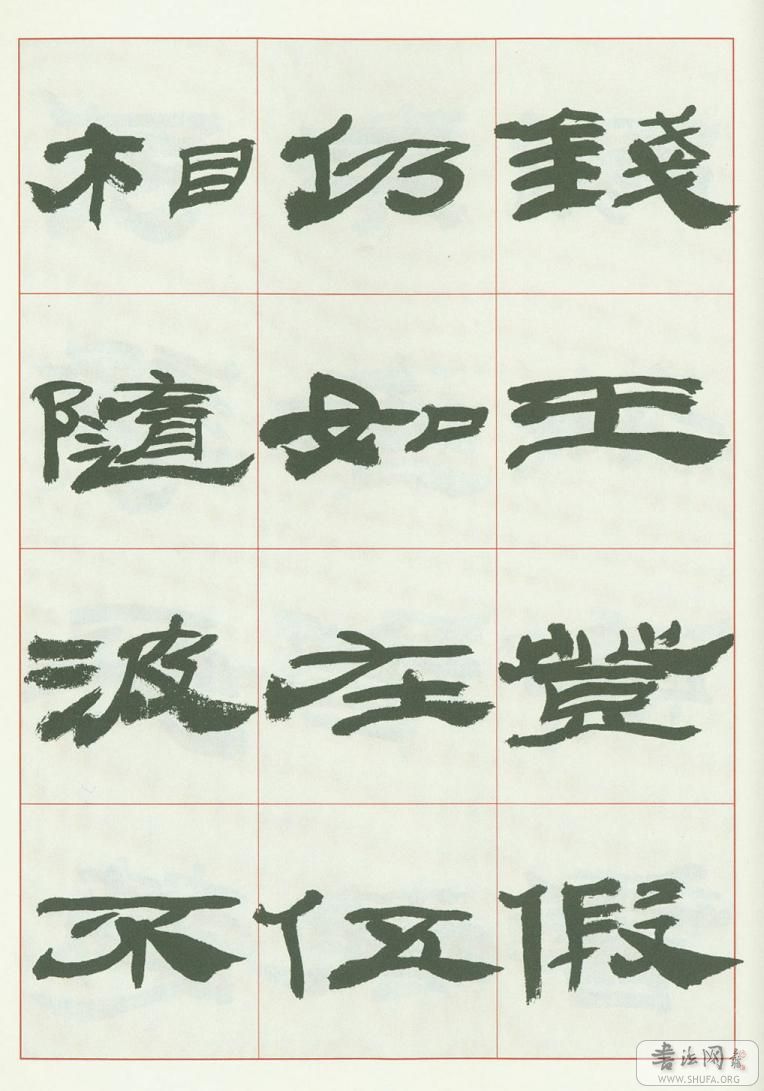 錢王登假
仍如在伍
相隨波不
書法网
WWW.SHUFA.ORG